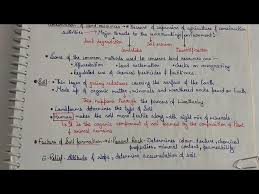 of land resource → Reason of expansion of agriculture & construction
activities → Major threats to the surrounding (environment)
Land degradation soil erosion Desertification
→ Some of the common methods used to conserve land resource are →
→ Afforestation → land reclamation → checks on overgrazing
→ Regulated use of chemical pesticides & fertilizers
→ Soil → Thin layer of grainy substance covering the surface of the Earth
→ Made up of organic matter, minerals and weathered rocks found on Earth
This happens through the process of Weathering
→ Landforms determine the type of soil
→ makes the soil more fertile along with right mix of minerals
→ It is the organic soil formed by the composition of Plant
& animal remains
→ Factors of Soil formation → Parent Rock - Determines colour, texture, chemical
properties, mineral content, permeability
→ Relief - Altitude of slope, determine accumulation of soil